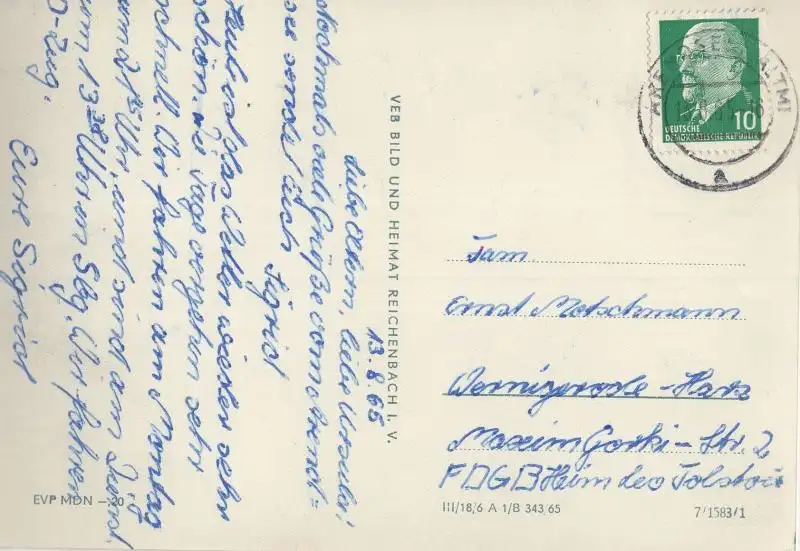 13.8.65
Liebe Eltern, liebe Ursula!
Nochmals viele Grüße vom Arend=
see sendet Euch
Sigrid
Heut ist das Wetter wieder sehr
schön. Die Tage vergehen sehr
schnell. Wir fahren am Montag
um 2 Uhr, und sind am Dienst
um 13 Uhr in Sbg. Wir fahren
D-Zug.
Eure Sigrid
VEB BILD UND HEIMAT REICHENBACH I. V.
EVP MDN – 20
10
DEUTSCHE
DEMOKRATISCHE REPUBLIK
a
Fam.
Ernst Motschmann
Wernigerode-Harz
Maxim Gorki-Str. 2
FDGB Heim Leo Tolstoi
III/18/6 A 1/B 343/65
7/1583/1